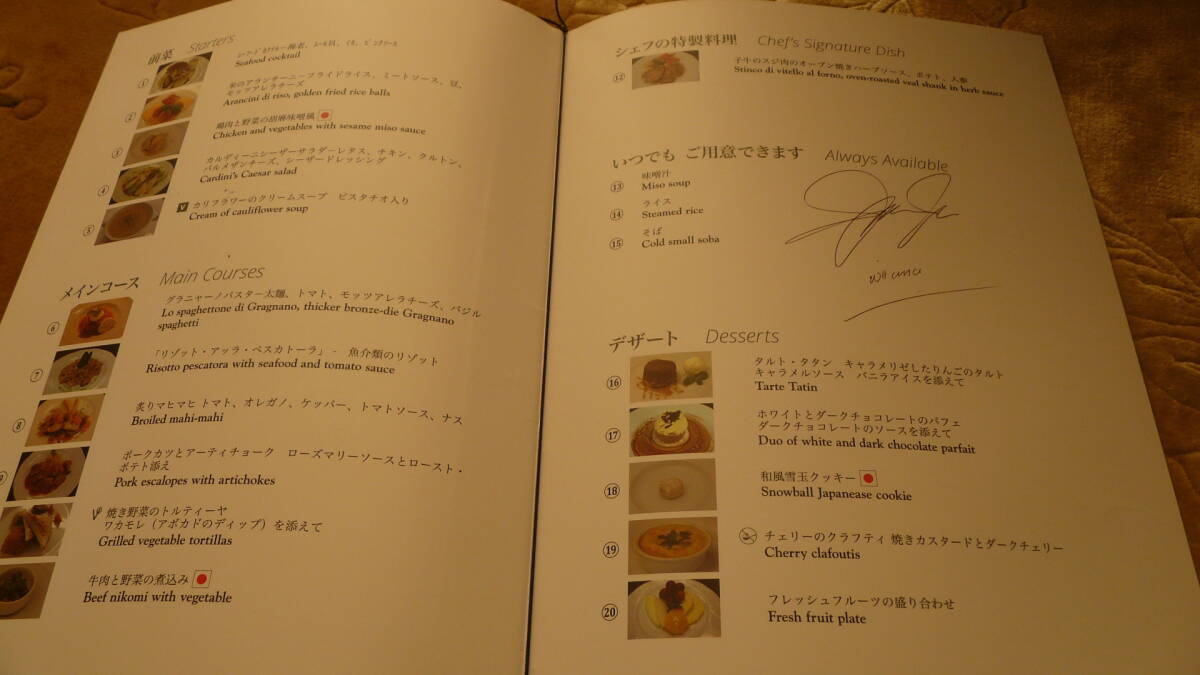 前菜 Starters
①
Seafood cocktail
②
米のアランチーニ－フライドライス、ミートソース、豆、
モッツアレラチーズ
Arancini di riso, golden fried rice balls
③
鶏肉と野菜の胡麻味噌風
Chicken and vegetables with sesame miso sauce
④
カルディーニシーザーサラダ－レタス、チキン、クルトン、
パルメザンチーズ、シーザードレッシング
Cardini's Caesar salad
⑤
V カリフラワーのクリームスープ ピスタチオ入り
Cream of cauliflower soup
メインコース Main Courses
⑥
グラニャーノパスタ－太麺、トマト、モッツアレラチーズ、バジル
Lo spaghettone di Gragnano, thicker bronze-die Gragnano
spaghetti
⑦
「リゾット・アッラ・ペスカトーラ」 - 魚介類のリゾット
Risotto pescatora with seafood and tomato sauce
⑧
炙りマヒマヒ トマト、オレガノ、ケッパー、トマトソース、ナス
Broiled mahi-mahi
ポークカツとアーティチョーク ローズマリーソースとロースト・
ポテト添え
Pork escalopes with artichokes
V 焼き野菜のトルティーヤ
ワカモレ（アボカドのディップ）を添えて
Grilled vegetable tortillas
牛肉と野菜の煮込み
Beef nikomi with vegetable
シェフの特製料理 Chef's Signature Dish
⑫
子牛のスジ肉のオーブン焼きハーブソース、ポテト、人参
Stinco di vitello al forno, oven-roasted veal shank in herb sauce
いつでも ご用意できます Always Available
⑬
味噌汁
Miso soup
⑭
ライス
Steamed rice
⑮
そば
Cold small soba
デザート Desserts
⑯
タルト・タタン キャラメリゼしたりんごのタルト
キャラメルソース バニラアイスを添えて
Tarte Tatin
⑰
ホワイトとダークチョコレートのパフェ
ダークチョコレートのソースを添えて
Duo of white and dark chocolate parfait
⑱
和風雪玉クッキー
Snowball Japanease cookie
⑲
チェリーのクラフティ 焼きカスタードとダークチェリー
Cherry clafoutis
⑳
フレッシュフルーツの盛り合わせ
Fresh fruit plate